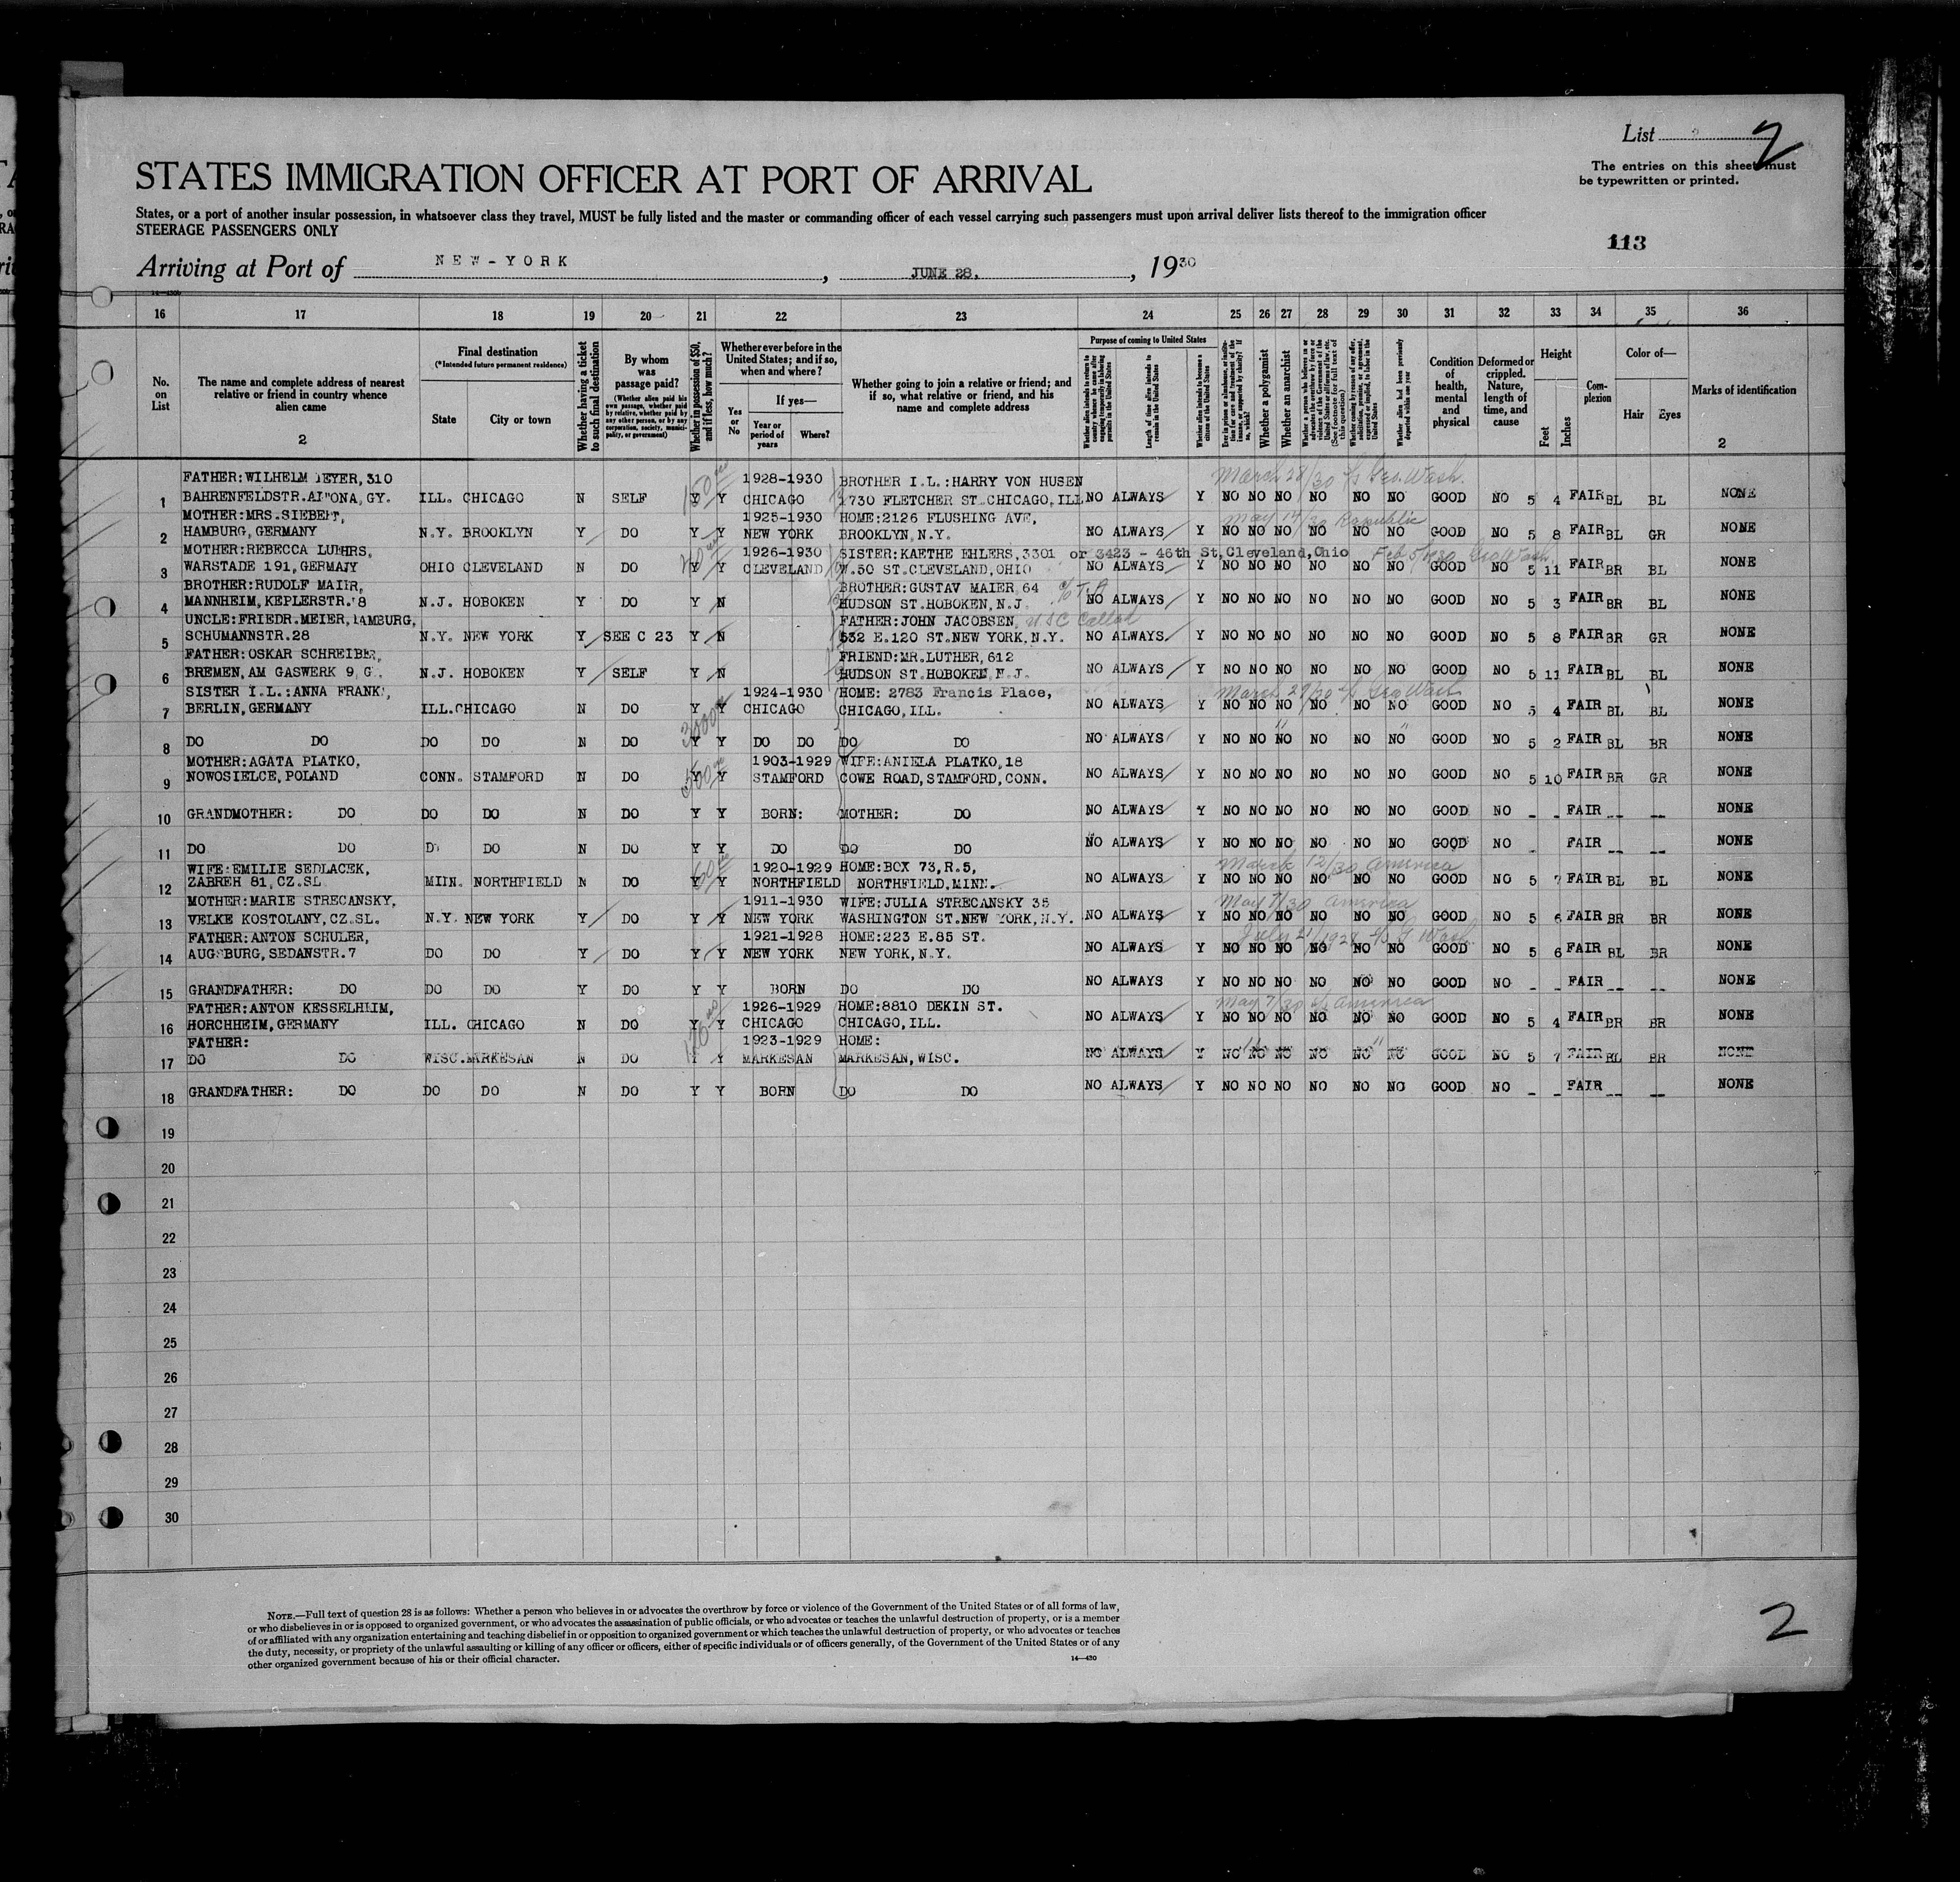 List 2
STATES IMMIGRATION OFFICER AT PORT OF ARRIVAL
The entries on this sheet must
be typewritten or printed.
States, or a port of another insular possession, in whatsoever class they travel, MUST be fully listed and the master or commanding officer of each vessel carrying such passengers must upon arrival deliver lists thereof to the immigration officer
STEERAGE PASSENGERS ONLY
113
Arriving at Port of NEW-YORK, JUNE 28, 1930
14-430
16 17 18 19 20 21 22 23 24 25 26 27 28 29 30 31 32 33 34 35 36
No. on List
The name and complete address of nearest relative or friend in country whence alien came
2
Final destination
(*Intended future permanent residence)
State
City or town
Whether having a ticket to such final destination
By whom was passage paid?
(Whether alien paid his own passage, whether paid by relative, whether paid by any other person, or by any corporation, society, municipality, or government)
Whether in possession of $50, and if less, how much?
Whether ever before in the United States; and if so, when and where?
Yes or No
If yes—
Year or period of years
Where?
Whether going to join a relative or friend; and if so, what relative or friend, and his name and complete address
Purpose of coming to United States
Length of time alien intends to remain in the United States
Whether alien intends to become a citizen of the United States
Whether a polygamist
Whether an anarchist
Condition of health, mental and physical
Deformed or crippled. Nature, length of time, and cause
Height
Feet
Inches
Complexion
Color of—
Hair
Eyes
Marks of identification
2
FATHER:WILHELM MEYER,310 1928-1930 BROTHER I.L.:HARRY VON HUSEN March 28/30 Geo. Wash.
1 BAHRENFELDSTR.ALTONA,GY. ILL. CHICAGO N SELF 150 Y Y CHICAGO 1730 FLETCHER ST.CHICAGO,ILL NO ALWAYS Y NO NO NO NO NO NO GOOD NO 5 4 FAIR BL BL NONE
MOTHER:MRS.SIEBERT, 1925-1930 HOME:2126 FLUSHING AVE, May 14/30 Republic
2 HAMBURG,GERMANY N.Y. BROOKLYN Y DO Y Y NEW YORK BROOKLYN,N.Y. NO ALWAYS Y NO NO NO NO NO NO GOOD NO 5 8 FAIR BL GR NONE
MOTHER:REBECCA LUEHRS, 1926-1930 SISTER:KAETHE EHLERS,3301 or 3423 - 46th St,Cleveland,Ohio Feb 5/1930 Geo Wash.
3 WARSTADE 191,GERMANY OHIO CLEVELAND N DO Y Y CLEVELAND W.50 ST.CLEVELAND,OHIO NO ALWAYS Y NO NO NO NO NO NO GOOD NO 5 11 FAIR BR BL NONE
BROTHER:RUDOLF MAIER, BROTHER:GUSTAV MAIER 64
4 MANNHEIM,KEPLERSTR.18 N.J. HOBOKEN Y DO Y N HUDSON ST.HOBOKEN,N.J. NO ALWAYS Y NO NO NO NO NO NO GOOD NO 5 3 FAIR BR BL NONE
UNCLE:FRIEDR.MEIER,HAMBURG, FATHER:JOHN JACOBSEN, USC Called
5 SCHUMANNSTR.28 N.Y. NEW YORK Y SEE C 23 Y N 532 E.120 ST.NEW YORK,N.Y. NO ALWAYS Y NO NO NO NO NO NO GOOD NO 5 8 FAIR BR GR NONE
FATHER:OSKAR SCHREIBER, FRIEND:MR.LUTHER,612
6 BREMEN,AM GASWERK 9,G. N.J. HOBOKEN Y SELF Y N HUDSON ST.HOBOKEN,N.J. NO ALWAYS Y NO NO NO NO NO NO GOOD NO 5 11 FAIR BL BL NONE
SISTER I.L.:ANNA FRANK, 1924-1930 HOME: 2783 Francis Place, March 29/30 Geo Wash
7 BERLIN,GERMANY ILL.CHICAGO N DO Y Y CHICAGO CHICAGO,ILL. NO ALWAYS Y NO NO NO NO NO NO GOOD NO 5 4 FAIR BL BL NONE
8 DO DO DO DO N DO 3000 Y Y DO DO DO DO NO ALWAYS Y NO NO NO NO NO NO GOOD NO 5 2 FAIR BL BR NONE
MOTHER:AGATA PLATKO, 1903-1929 WIFE:ANIELA PLATKO,18
9 NOWOSIELCE,POLAND CONN. STAMFORD N DO Y Y STAMFORD COWE ROAD,STAMFORD,CONN. NO ALWAYS Y NO NO NO NO NO NO GOOD NO 5 10 FAIR BR GR NONE
10 GRANDMOTHER: DO DO DO N DO Y Y BORN: MOTHER: DO NO ALWAYS Y NO NO NO NO NO NO GOOD NO _ _ FAIR __ __ NONE
11 DO DO DO DO N DO Y Y DO DO DO NO ALWAYS Y NO NO NO NO NO NO GOOD NO _ FAIR __ __ NONE
WIFE:EMILIE SEDLACEK, 1920-1929 HOME:BOX 73,R.5, March 12/30 America
12 ZABREH 81,CZ.SL MINN. NORTHFIELD N DO 60 Y Y NORTHFIELD NORTHFIELD,MINN. NO ALWAYS Y NO NO NO NO NO NO GOOD NO 5 7 FAIR BL BL NONE
MOTHER:MARIE STRECANSKY, 1911-1930 WIFE:JULIA STRECANSKY 35 May 7/30 America
13 VELKE KOSTOLANY,CZ.SL. N.Y. NEW YORK Y DO Y Y NEW YORK WASHINGTON ST.NEW YORK,N.Y. NO ALWAYS Y NO NO NO NO NO NO GOOD NO 5 6 FAIR BR BR NONE
FATHER:ANTON SCHULER, 1921-1928 HOME:223 E.85 ST. July 21/1928 G Wash.
14 AUGSBURG,SEDANSTR.7 DO DO Y DO Y Y NEW YORK NEW YORK,N.Y. NO ALWAYS Y NO NO NO NO NO NO GOOD NO 5 6 FAIR BL BR NONE
15 GRANDFATHER: DO DO DO Y DO Y Y BORN DO DO NO ALWAYS Y NO NO NO NO NO NO GOOD NO _ _ FAIR __ __ NONE
FATHER:ANTON KESSELHEIM, 1926-1929 HOME:8810 DEKIN ST. May 7/30 America
16 HORCHHEIM,GERMANY ILL. CHICAGO N DO Y Y CHICAGO CHICAGO,ILL. NO ALWAYS Y NO NO NO NO NO NO GOOD NO 5 4 FAIR BR BR NONE
FATHER: 1923-1929 HOME:
17 DO DO WISC.MARKESAN N DO Y Y MARKESAN MARKESAN,WISC. NO ALWAYS Y NO NO NO NO NO NO GOOD NO 5 7 FAIR BL BR NONE
18 GRANDFATHER: DO DO DO N DO Y Y BORN DO DO NO ALWAYS Y NO NO NO NO NO NO GOOD NO _ _ FAIR __ __ NONE
19
20
21
22
23
24
25
26
27
28
29
30
NOTE.—Full text of question 28 is as follows: Whether a person who believes in or advocates the overthrow by force or violence of the Government of the United States or of all forms of law,
or who disbelieves in or is opposed to organized government, or who advocates the assassination of public officials, or who advocates or teaches the unlawful destruction of property, or is a member
of or affiliated with any organization entertaining and teaching disbelief in or opposition to organized government or which teaches the unlawful destruction of property, or who advocates or teaches
the duty, necessity, or propriety of the unlawful assaulting or killing of any officer or officers, either of specific individuals or of officers generally, of the Government of the United States or of any
other organized government because of his or their official character.
14—430
2